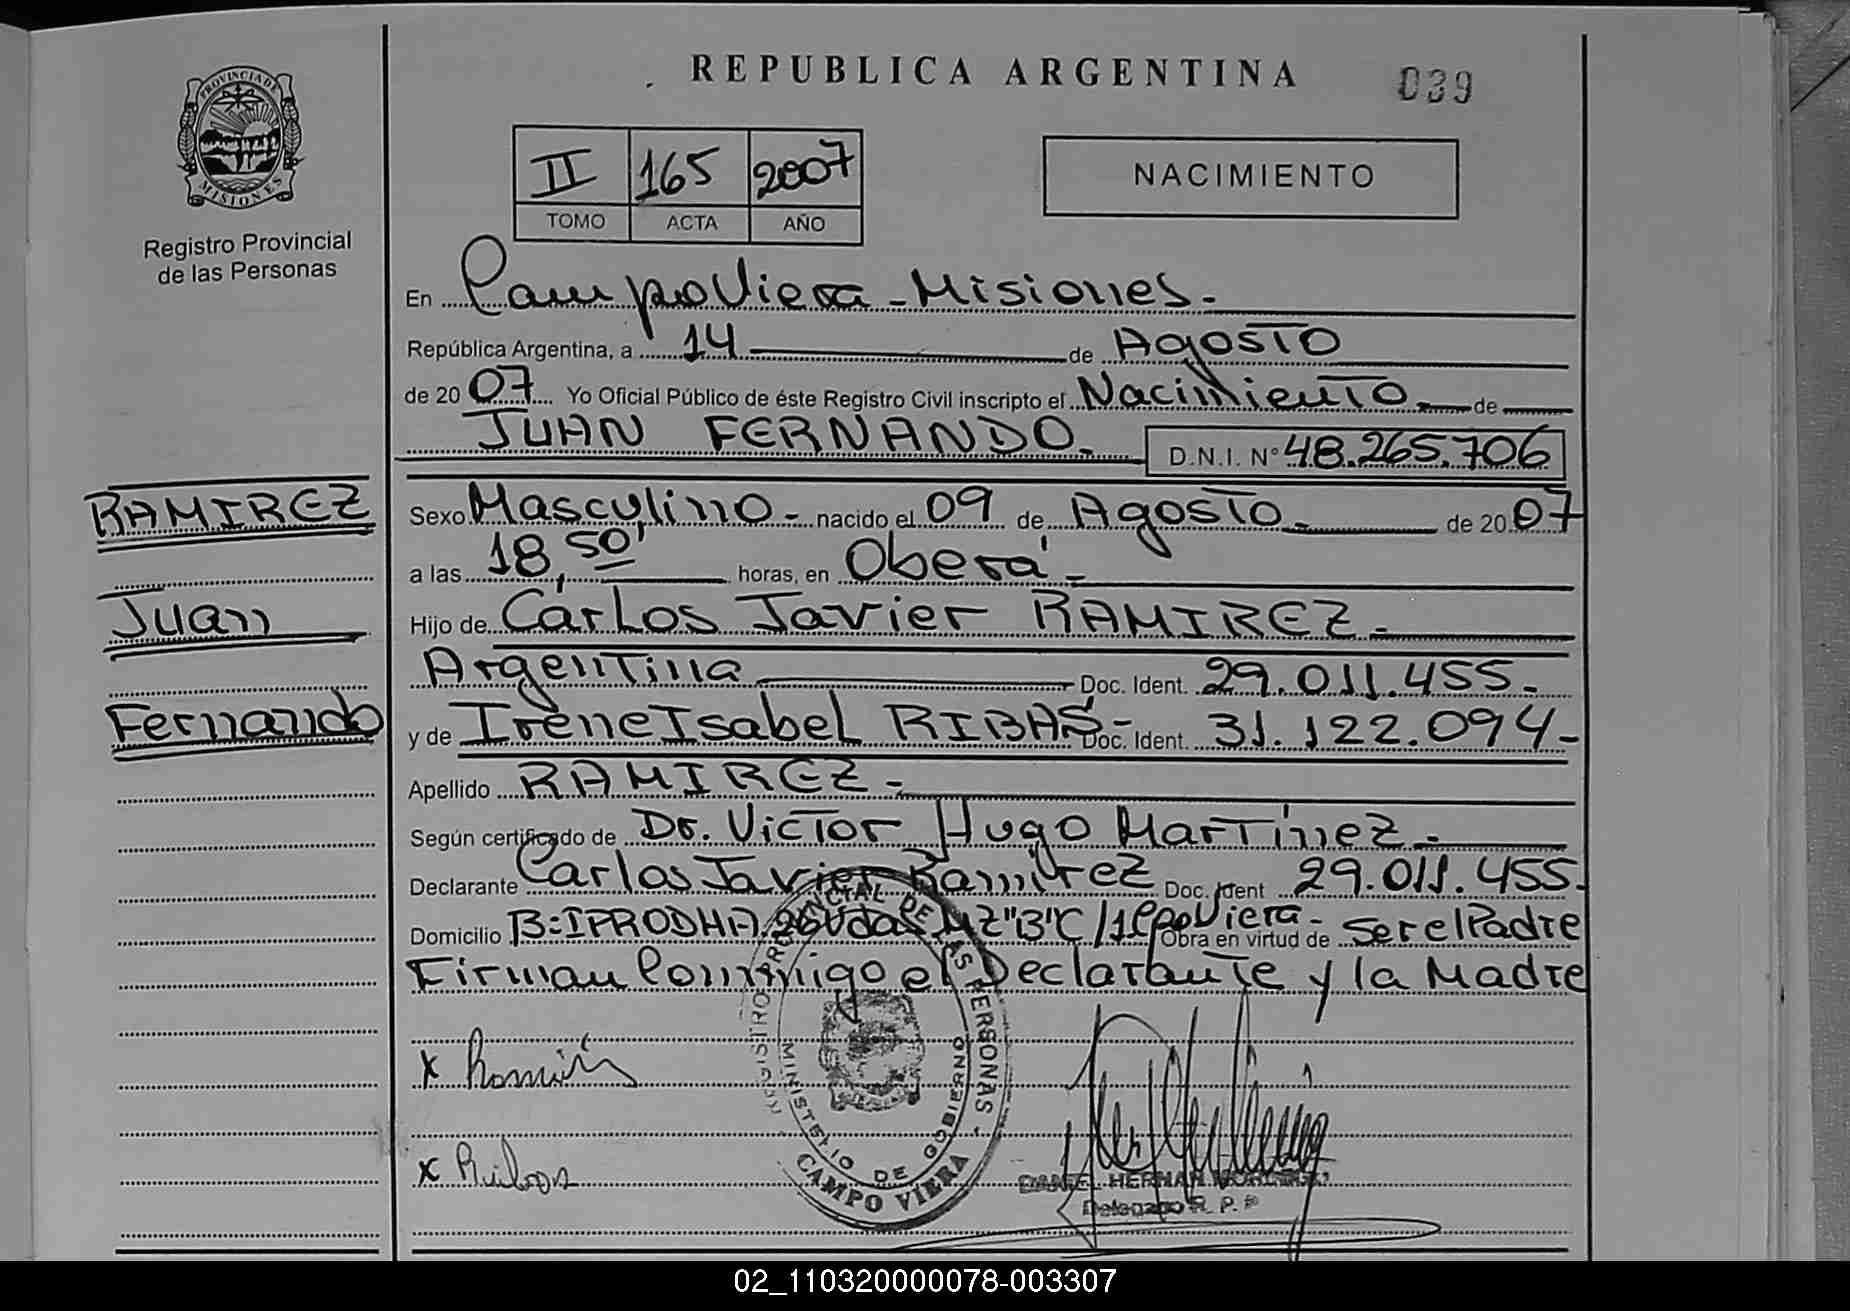 REPUBLICA ARGENTINA
039
PROVINCIA DE
MISIONES
Registro Provincial
de las Personas
II 165 2007
TOMO ACTA AÑO
NACIMIENTO
En Campo Viera - Misiones -
República Argentina, a 14 de Agosto
de 2007 Yo Oficial Público de éste Registro Civil inscripto el Nacimiento de
JUAN FERNANDO. D.N.I. N° 48.265.706
RAMIREZ
Juan
Fernando
Sexo Masculino - nacido el 09 de Agosto - de 2007
a las 18,50' horas, en Oberá -
Hijo de Carlos Javier RAMIREZ -
Argentina Doc. Ident. 29.011.455 -
y de Irene Isabel RIBAS - Doc. Ident. 31.122.094 -
Apellido RAMIREZ -
Según certificado de Dr. Victor Hugo Martínez -
Declarante Carlos Javier Ramirez Doc. Ident 29.011.455.
Domicilio B: IPRODHA 26 Vdas Mz "B" C/1 Cpo Viera - Obra en virtud de ser el Padre
Firman Conmigo el Declarante y la Madre
x Ramirez
x Ribas
REGISTRO PROVINCIAL DE LAS PERSONAS -
MINISTERIO DE GOBIERNO
CAMPO VIERA
DANIEL HERNAN
Delegado R. P. P
02_110320000078-003307